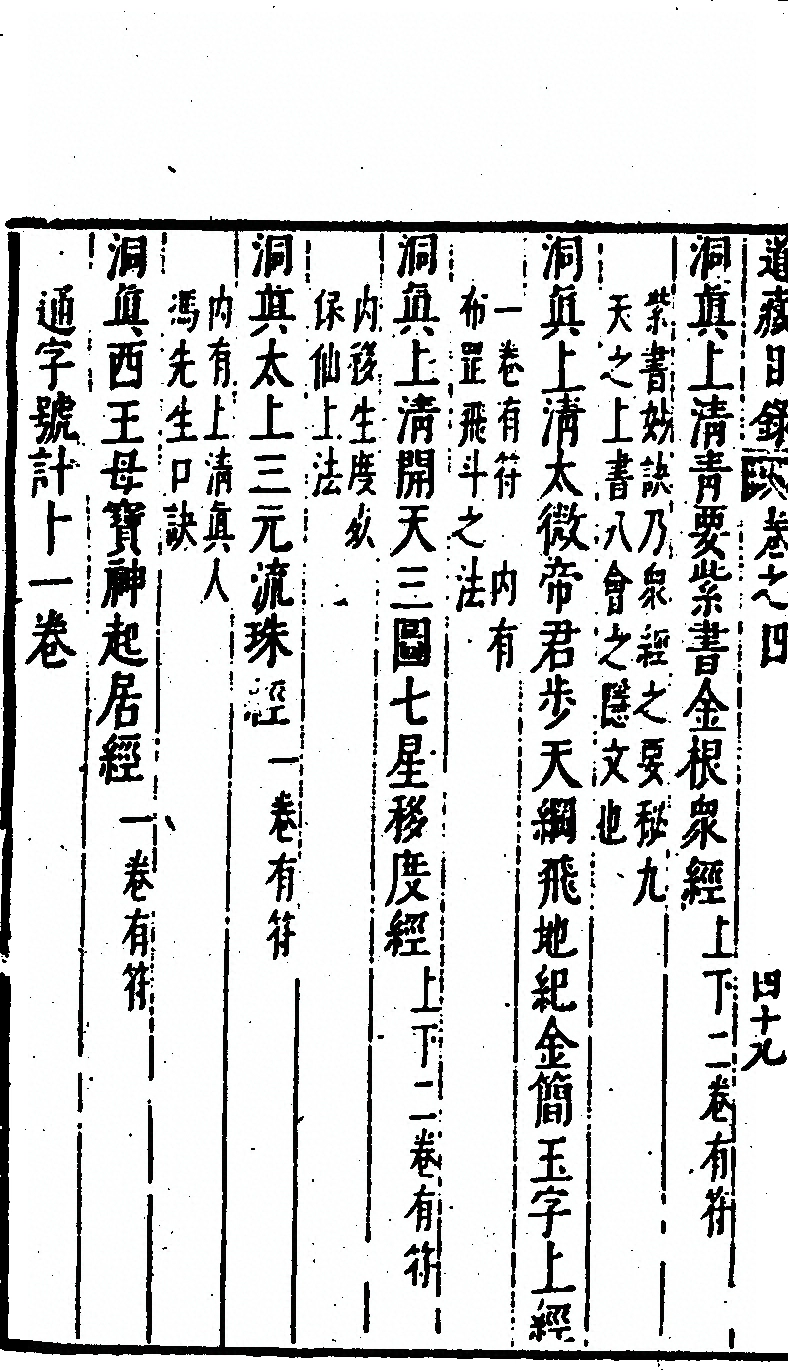 道藏目錄 卷之四 四十九
洞眞上清青要紫書金根衆經 上下二卷有符
紫書妙訣乃衆經之要秘九
天之上書八會之隱文也
洞眞上淸太微帝君步天綱飛地紀金簡玉字上經
一卷有符 內有
布罡飛斗之法
洞眞上淸開天三圖七星移度經 上下二卷有符
內移生度
保仙上法
洞眞太上三元流珠經 一卷有符
內有上淸眞人
馮先生口訣
洞眞西王母寶神起居經 一卷有符
通字號計十一卷